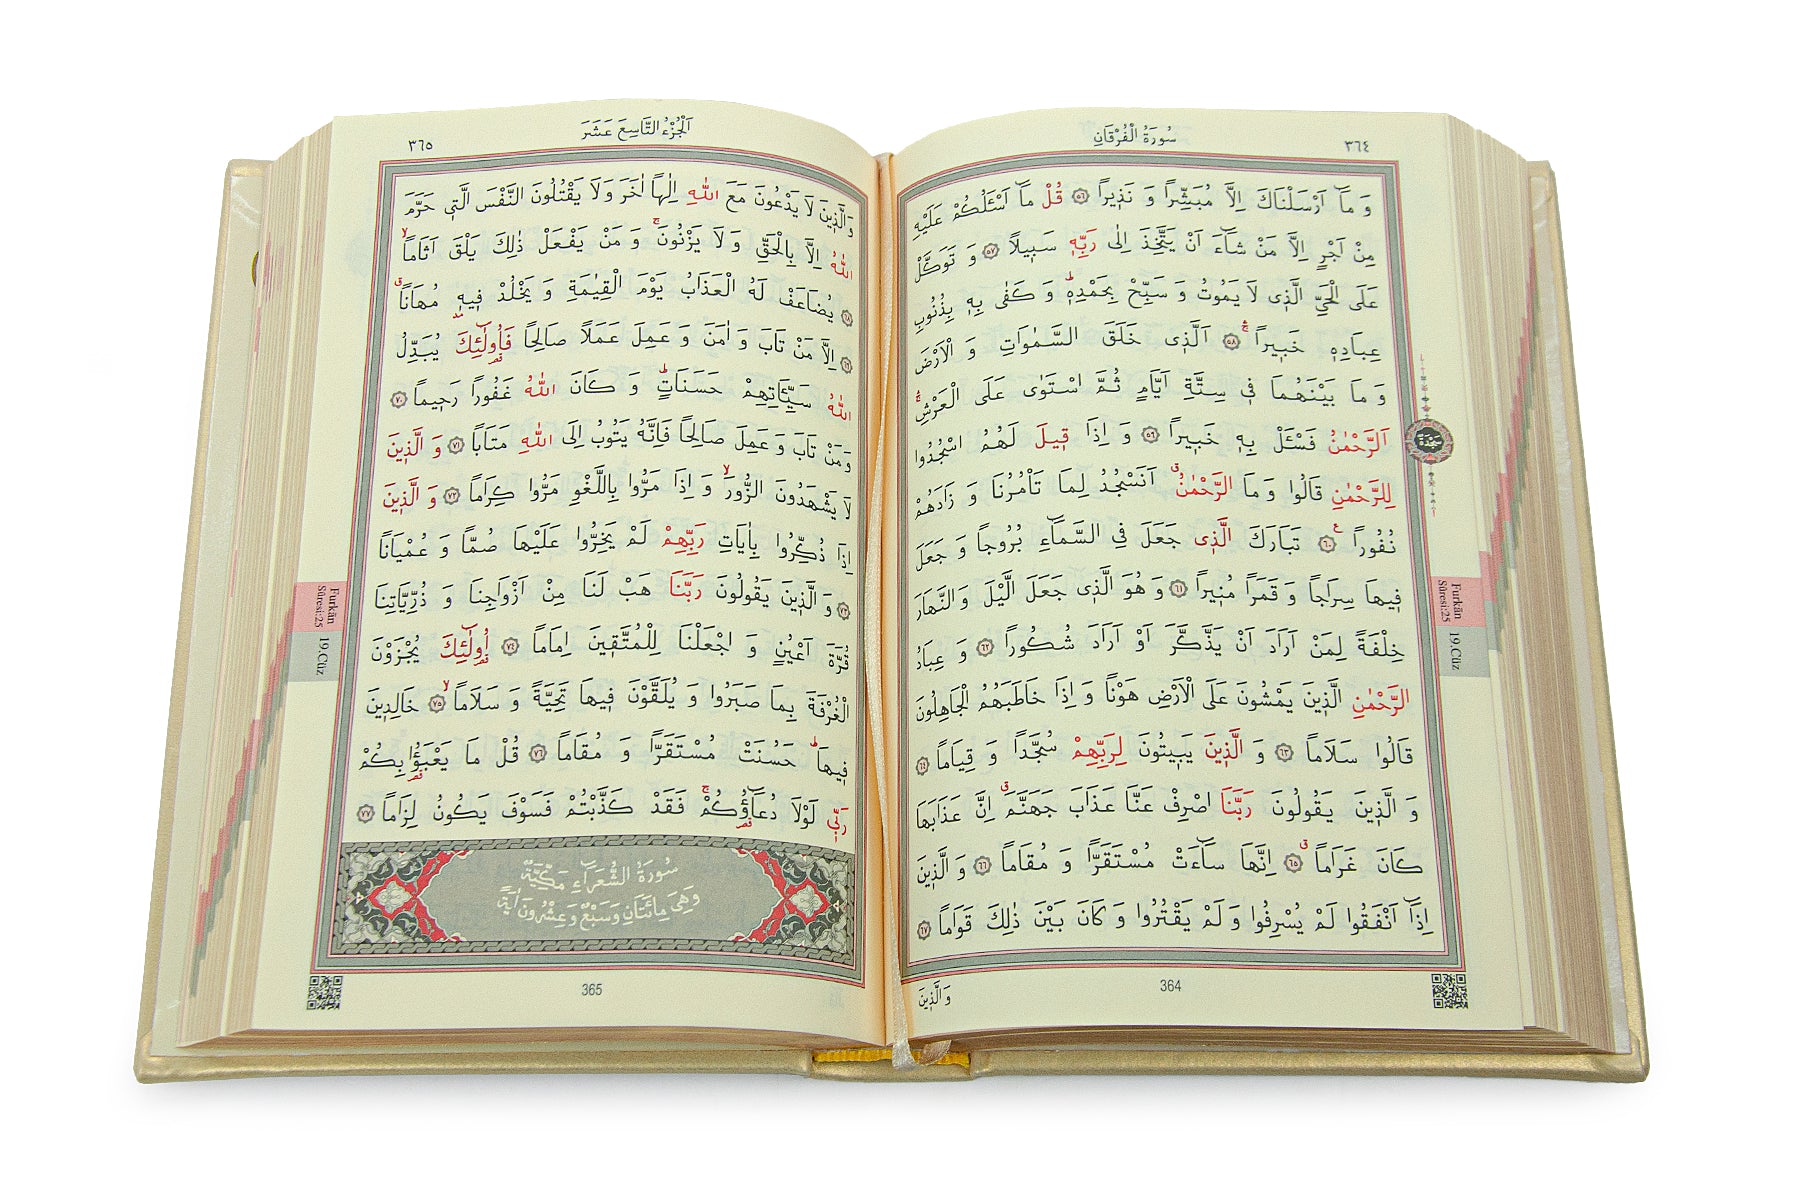 ٣٦٤
سُورَةُ الْفُرْقَانِ
وَ مَٓا اَرْسَلْنَاكَ اِلَّا مُبَشِّراً وَ نَذ۪يراً ﴿٥٦﴾ قُلْ مَٓا اَسْـَٔلُكُمْ عَلَيْهِ
مِنْ اَجْرٍ اِلَّا مَنْ شَٓاءَ اَنْ يَتَّخِذَ اِلٰى رَبِّه۪ سَب۪يلاً ﴿٥٧﴾ وَ تَوَكَّلْ
عَلَى الْحَيِّ الَّذ۪ى لَا يَمُوتُ وَ سَبِّحْ بِحَمْدِه۪ۜ وَ كَفٰى بِه۪ بِذُنُوبِ
عِبَادِه۪ خَب۪يراًۚ ﴿٥٨﴾ اَلَّذ۪ى خَلَقَ السَّمٰوَاتِ وَ الْاَرْضَ
وَ مَا بَيْنَهُمَا ف۪ى سِتَّةِ اَيَّامٍ ثُمَّ اسْتَوٰى عَلَى الْعَرْشِۚ
اَلرَّحْمٰنُ فَسْـَٔلْ بِه۪ خَب۪يراً ﴿٥٩﴾ وَ اِذَا ق۪يلَ لَهُمُ اسْجُدُوا
لِلرَّحْمٰنِ قَالُوا وَ مَا الرَّحْمٰنُۗ اَنَسْجُدُ لِمَا تَأْمُرُنَا وَ زَادَهُمْ
نُفُوراً ﴿٦٠﴾ تَبَارَكَ الَّذ۪ى جَعَلَ فِي السَّمَٓاءِ بُرُوجاً وَ جَعَلَ
ف۪يهَا سِرَاجاً وَ قَمَراً مُن۪يراً ﴿٦١﴾ وَ هُوَ الَّذ۪ى جَعَلَ الَّيْلَ وَ النَّهَارَ
خِلْفَةً لِمَنْ اَرَادَ اَنْ يَذَّكَّرَ اَوْ اَرَادَ شُكُوراً ﴿٦٢﴾ وَ عِبَادُ
الرَّحْمٰنِ الَّذ۪ينَ يَمْشُونَ عَلَى الْاَرْضِ هَوْناً وَ اِذَا خَاطَبَهُمُ الْجَاهِلُونَ
قَالُوا سَلَاماً ﴿٦٣﴾ وَ الَّذ۪ينَ يَب۪يتُونَ لِرَبِّهِمْ سُجَّداً وَ قِيَاماً ﴿٦٤﴾
وَ الَّذ۪ينَ يَقُولُونَ رَبَّنَا اصْرِفْ عَنَّا عَذَابَ جَهَنَّمَۗ اِنَّ عَذَابَهَا
كَانَ غَرَاماًۗ ﴿٦٥﴾ اِنَّهَا سَٓاءَتْ مُسْتَقَرًّا وَ مُقَاماً ﴿٦٦﴾ وَ الَّذ۪ينَ
اِذَٓا اَنْفَقُوا لَمْ يُسْرِفُوا وَ لَمْ يَقْتُرُوا وَ كَانَ بَيْنَ ذٰلِكَ قَوَاماً ﴿٦٧﴾
وَالَّذ۪ينَ
364
سَجْدَة
Furkân
Sûresi:25
19.Cüz
اَلْجُزْءُ التَّاسِعَ عَشَرَ
٣٦٥
وَ الَّذ۪ينَ لَا يَدْعُونَ مَعَ اللّٰهِ اِلٰهاً اٰخَرَ وَ لَا يَقْتُلُونَ النَّفْسَ الَّت۪ى حَرَّمَ
اللّٰهُ اِلَّا بِالْحَقِّ وَ لَا يَزْنُونَۚ وَ مَنْ يَفْعَلْ ذٰلِكَ يَلْقَ اَثَاماًۙ
﴿٦٨﴾ يُضَاعَفْ لَهُ الْعَذَابُ يَوْمَ الْقِيٰمَةِ وَ يَخْلُدْ ف۪يه۪ مُهَاناًۗ
﴿٦٩﴾ اِلَّا مَنْ تَابَ وَ اٰمَنَ وَ عَمِلَ عَمَلاً صَالِحاً فَاُو۬لٰٓئِكَ يُبَدِّلُ
اللّٰهُ سَيِّـَٔاتِهِمْ حَسَنَاتٍۜ وَ كَانَ اللّٰهُ غَفُوراً رَح۪يماً ﴿٧٠﴾
وَ مَنْ تَابَ وَ عَمِلَ صَالِحاً فَاِنَّهُ يَتُوبُ اِلَى اللّٰهِ مَتَاباً ﴿٧١﴾ وَ الَّذ۪ينَ
لَا يَشْهَدُونَ الزُّورَۙ وَ اِذَا مَرُّوا بِاللَّغْوِ مَرُّوا كِرَاماً ﴿٧٢﴾ وَ الَّذ۪ينَ
اِذَا ذُكِّرُوا بِاٰيَاتِ رَبِّهِمْ لَمْ يَخِرُّوا عَلَيْهَا صُمًّا وَ عُمْيَاناً
﴿٧٣﴾ وَ الَّذ۪ينَ يَقُولُونَ رَبَّنَا هَبْ لَنَا مِنْ اَزْوَاجِنَا وَ ذُرِّيَّاتِنَا
قُرَّةَ اَعْيُنٍ وَ اجْعَلْنَا لِلْمُتَّق۪ينَ اِمَاماً ﴿٧٤﴾ اُو۬لٰٓئِكَ يُجْزَوْنَ
الْغُرْفَةَ بِمَا صَبَرُوا وَ يُلَقَّوْنَ ف۪يهَا تَحِيَّةً وَ سَلَاماًۙ ﴿٧٥﴾ خَالِد۪ينَ
ف۪يهَاۜ حَسُنَتْ مُسْتَقَرًّا وَ مُقَاماً ﴿٧٦﴾ قُلْ مَا يَعْبَؤُ۬ا بِكُمْ
رَبّ۪ى لَوْلَا دُعَٓاؤُ۬كُمْۚ فَقَدْ كَذَّبْتُمْ فَسَوْفَ يَكُونُ لِزَاماً ﴿٧٧﴾
سُورَةُ الشُّعَرَاءِ مَكِّيَّةٌ
وَهِيَ مِائَتَانِ وَسَبْعٌ وَعِشْرُونَ اٰيَةً
365
Furkân
Sûresi:25
19.Cüz